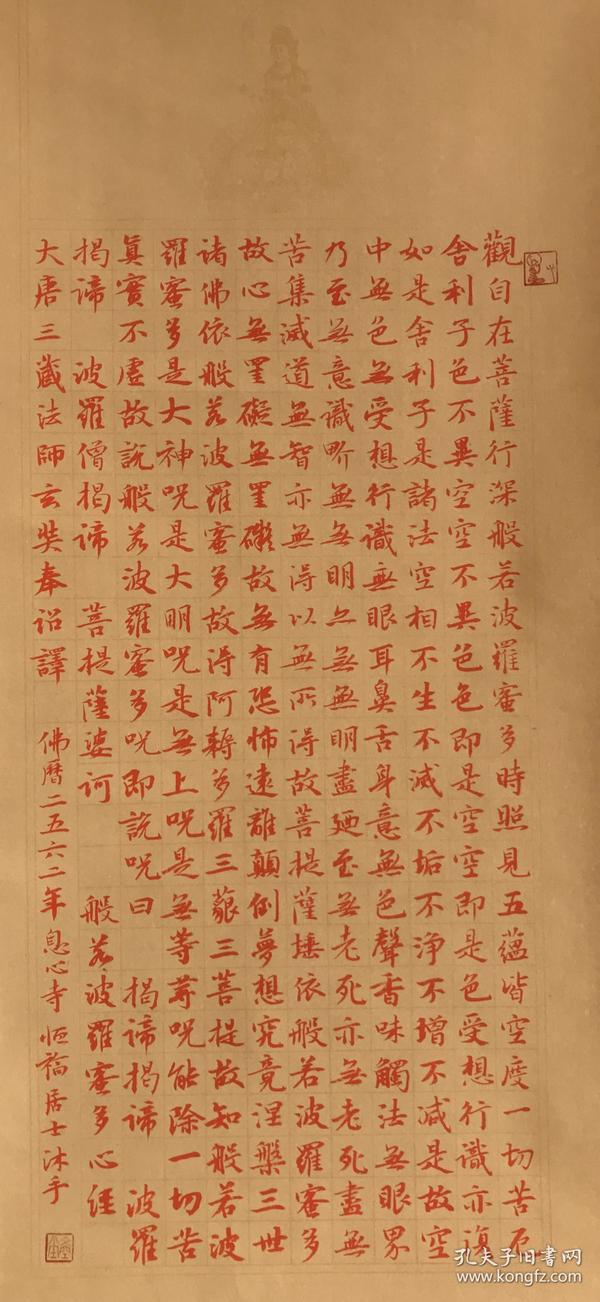 觀自在菩薩行深般若波羅蜜多時照見五蘊皆空度一切苦厄
舍利子色不異空空不異色色即是空空即是色受想行識亦復
如是舍利子是諸法空相不生不滅不垢不淨不增不减是故空
中無色無受想行識無眼耳鼻舌身意無色聲香味觸法無眼界
乃至無意識界無無明亦無無明盡廼至無老死亦無老死盡無
苦集滅道無智亦無得以無所得故菩提薩埵依般若波羅蜜多
故心無罣礙無罣礙故無有恐怖遠離顛倒夢想究竟涅槃三世
諸佛依般若波羅蜜多故得阿耨多羅三藐三菩提故知般若波
羅蜜多是大神呪是大明呪是無上呪是無等等呪能除一切苦
真實不虛故說般若波羅蜜多呪即說呪曰 揭諦揭諦 波羅
揭諦 波羅僧揭諦 菩提薩婆訶 般若波羅蜜多心經
大唐三藏法師玄奘奉詔譯 佛曆二五六二年息心寺恒福居士沐手
孔夫子旧书网
www.kongfz.com